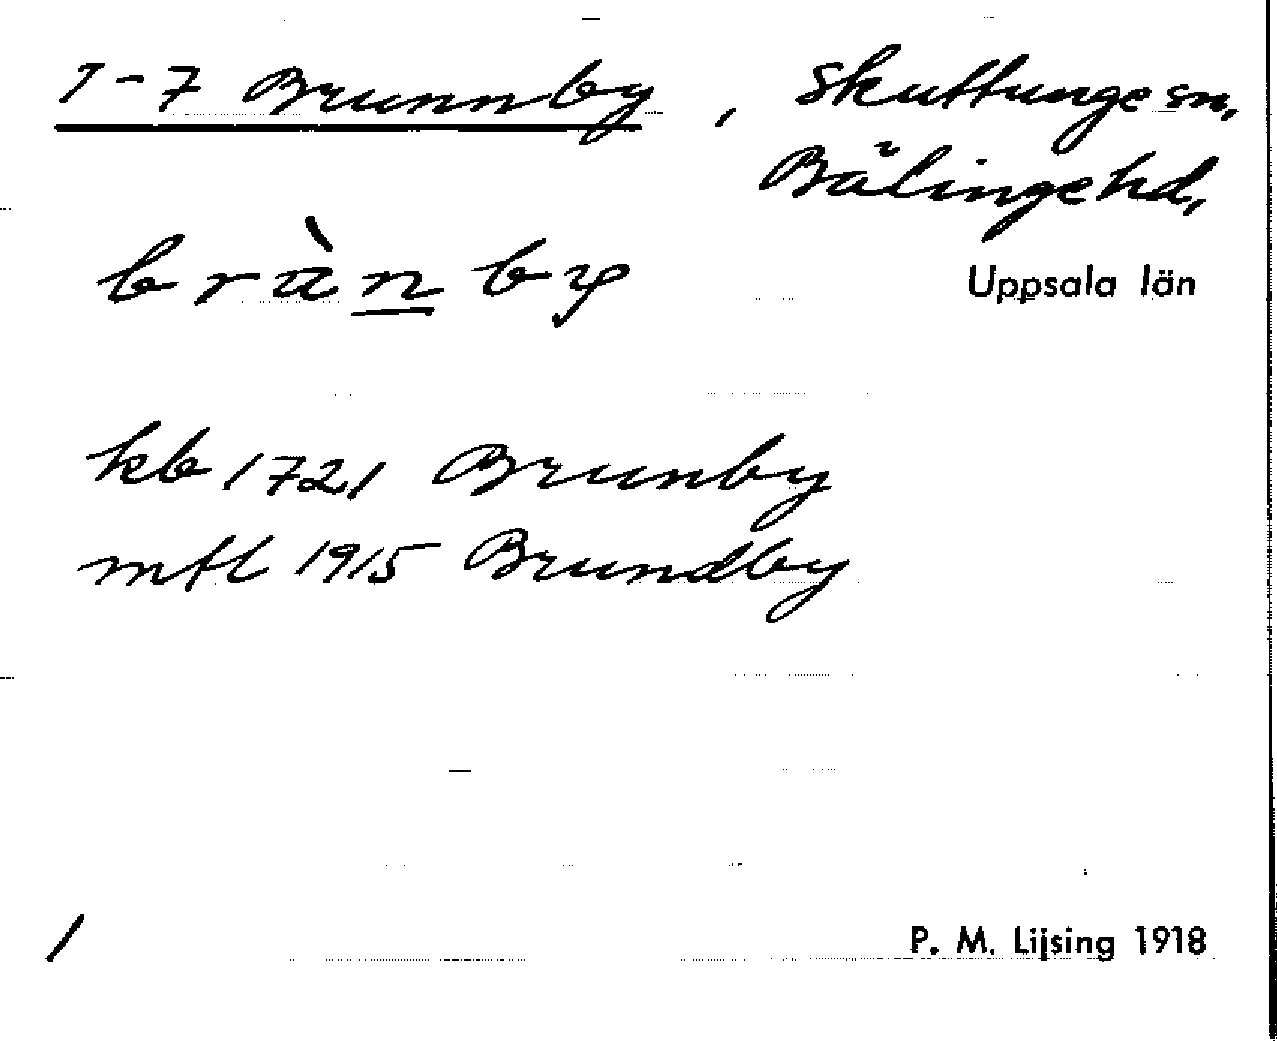 1-7 Brunnby, Skuttunge sn,
Bälinge hd,
Uppsala län
brùn by
kb 1721 Brunby
mtl 1915 Brundby
/
P. M. Lijsing 1918